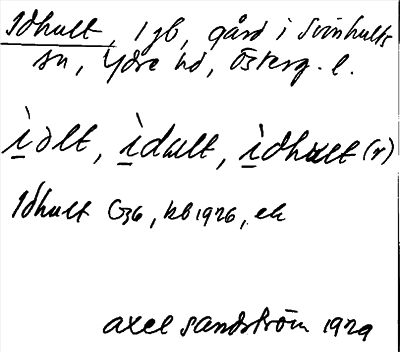 Idhult, 1 gb, gård i Svinhults
sn, Ydre hd, Österg. l.
ìdlt, ìdælt, ìdhælt (r)
Idhult G36, kb 1926, ek
Axel Sandström 1929